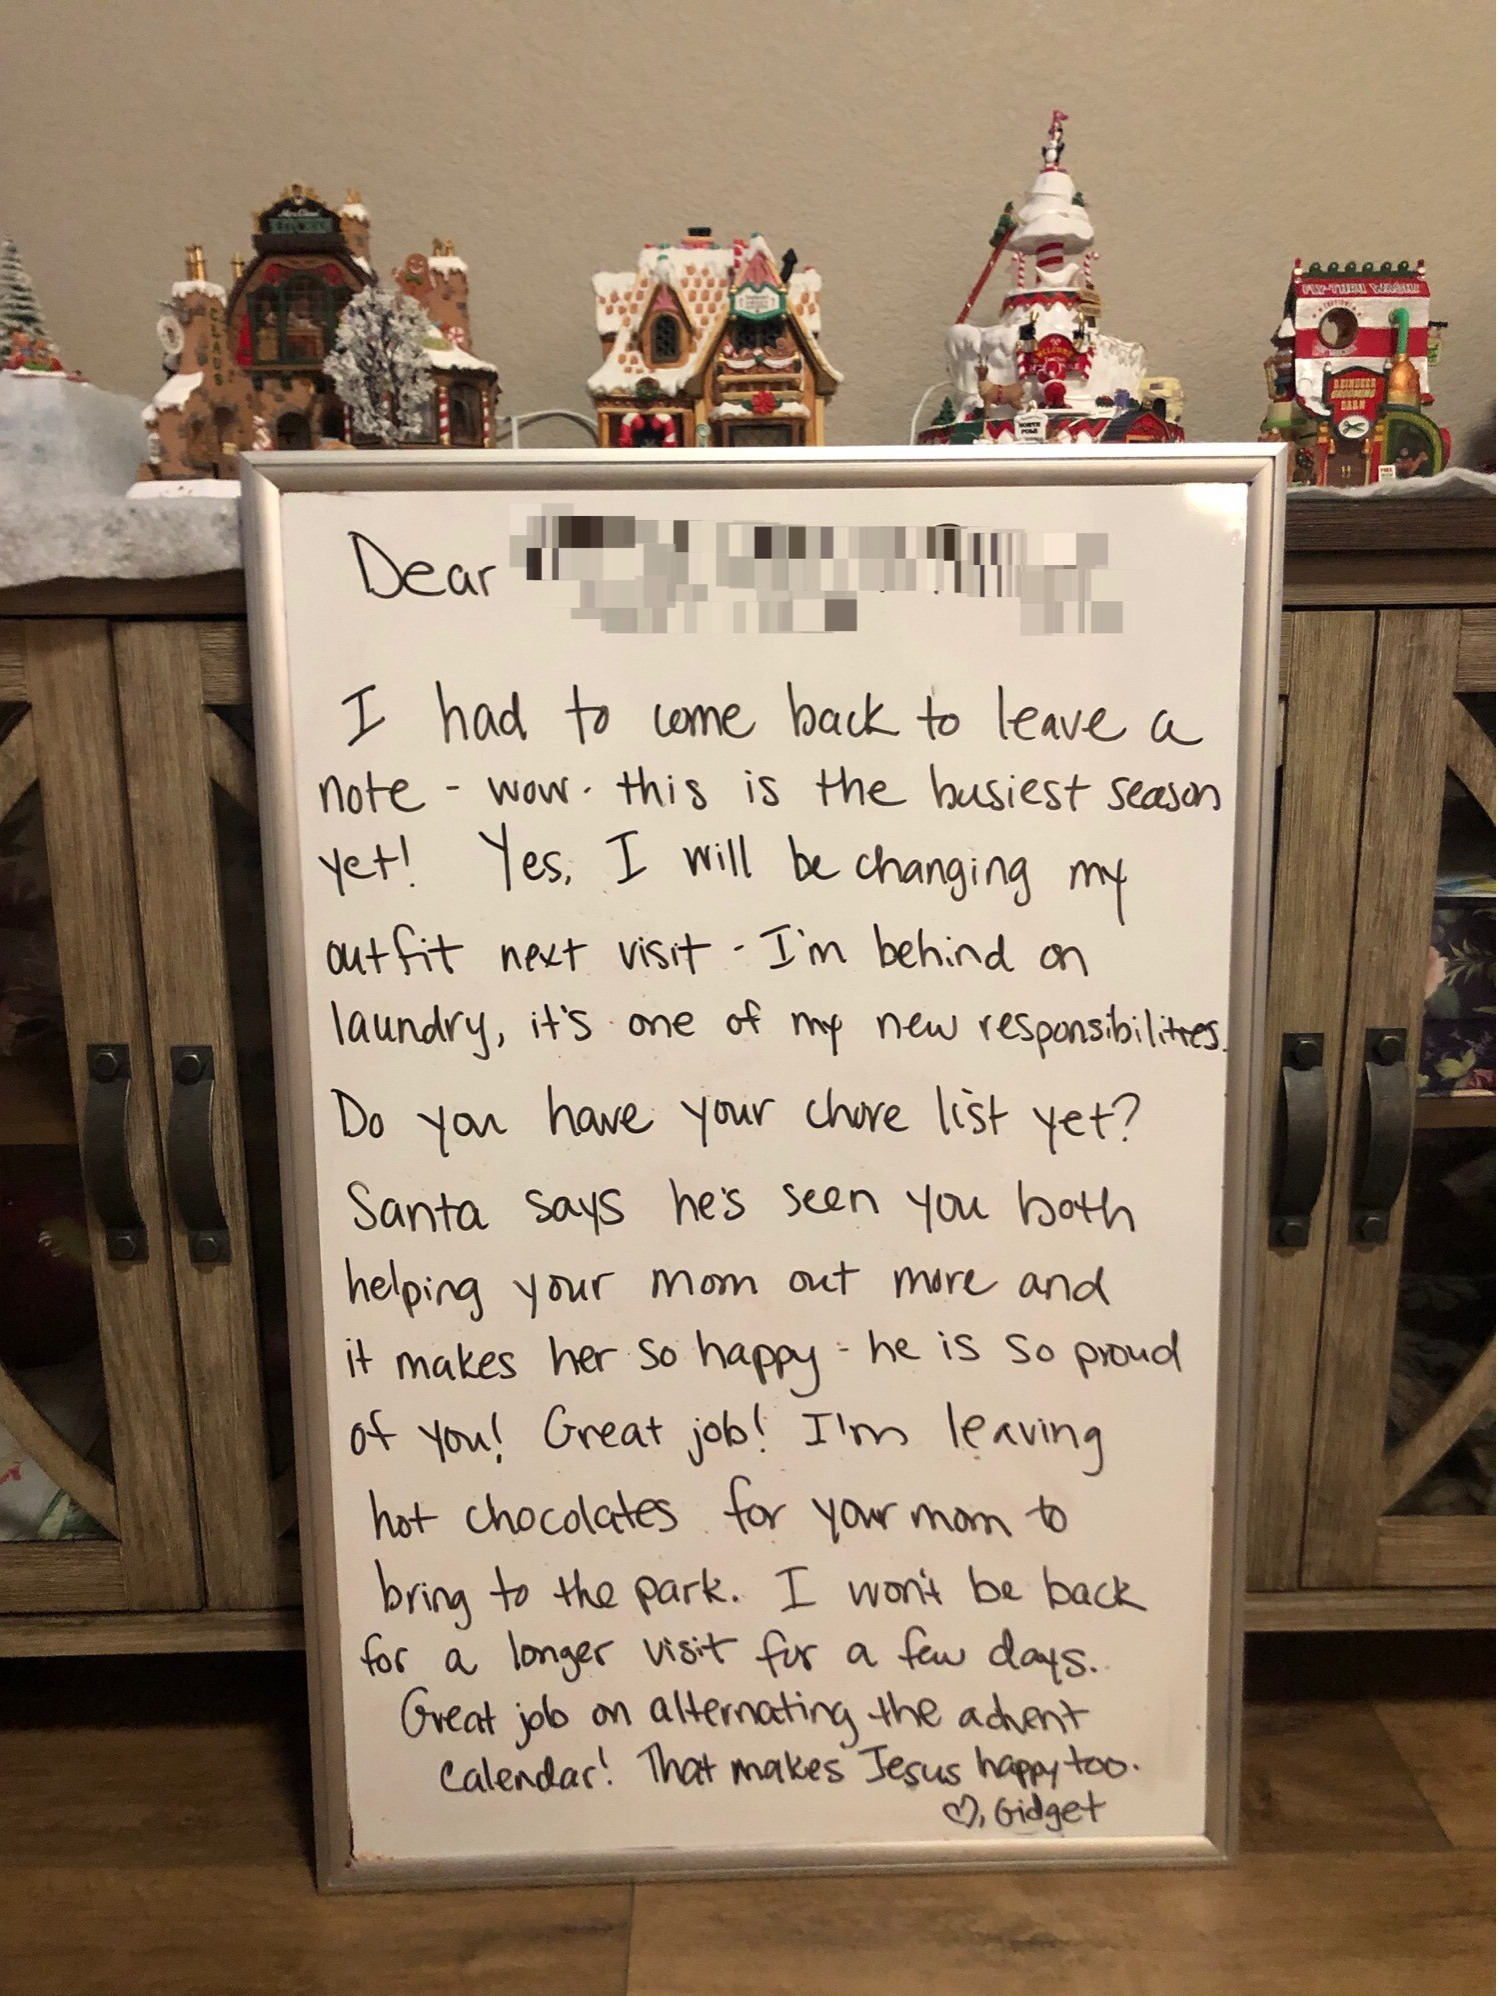 Mrs. Claus'
KITCHEN
CLAUS
WELCOME
NORTH
POLE
FLY-THRU WASH!
REINDEER
GROOMING
BARN
Dear
I had to come back to leave a
note - wow. this is the busiest season
yet! Yes, I will be changing my
outfit next visit - I'm behind on
laundry, it's one of my new responsibilities.
Do you have your chore list yet?
Santa says he's seen you both
helping your mom out more and
it makes her so happy - he is so proud
of you! Great job! I'm leaving
hot chocolates for your mom to
bring to the park. I won't be back
for a longer visit for a few days.
Great job on alternating the advent
calendar! That makes Jesus happy too.
♡, Gidget